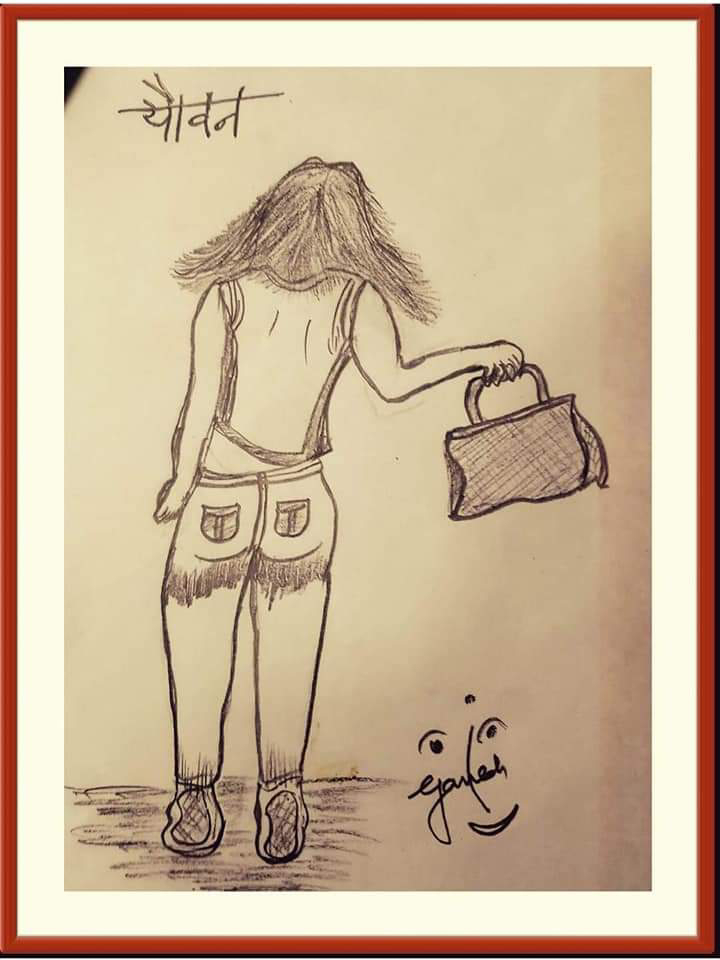 यौवन
Ganesh